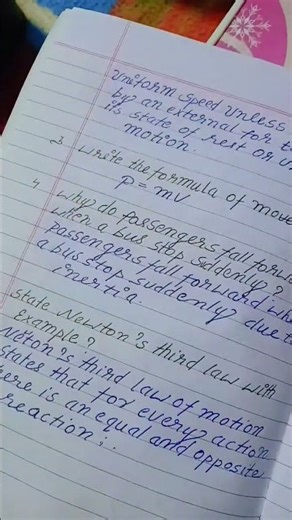 uniform speed unless
by an external for t
its state of rest or u
motion.
3 write the formula of move
P = mv
4. Why do passengers fall forwa
when a bus stop suddenly?
passengers fall forward whe
a bus stop suddenly due t
inertia.
state Newton's third law with
Example?
Neton's third law of motion
states that for every action
here is an equal and opposite
reaction;.